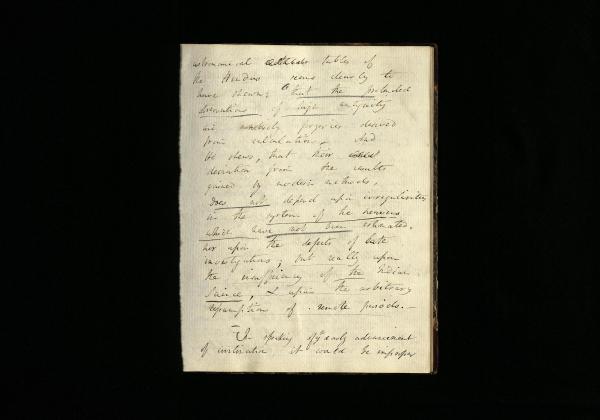 astronomical tables of
the Hindus seems clearly to
have shewn; that the pretended
observations of high antiquity
are merely forgeries derived
from calculation, And
He shews, that their
deviation from the results
gained by modern methods,
does not depend upon irregularities
in the system of the heavens
which have not been estimated,
nor upon the defects of late
investigations; but really upon
the insufficiency of the Indian
Science, & upon the arbitrary
assumptions of remote periods. —
In speaking of ye early advancement
of civilisation it would be improper